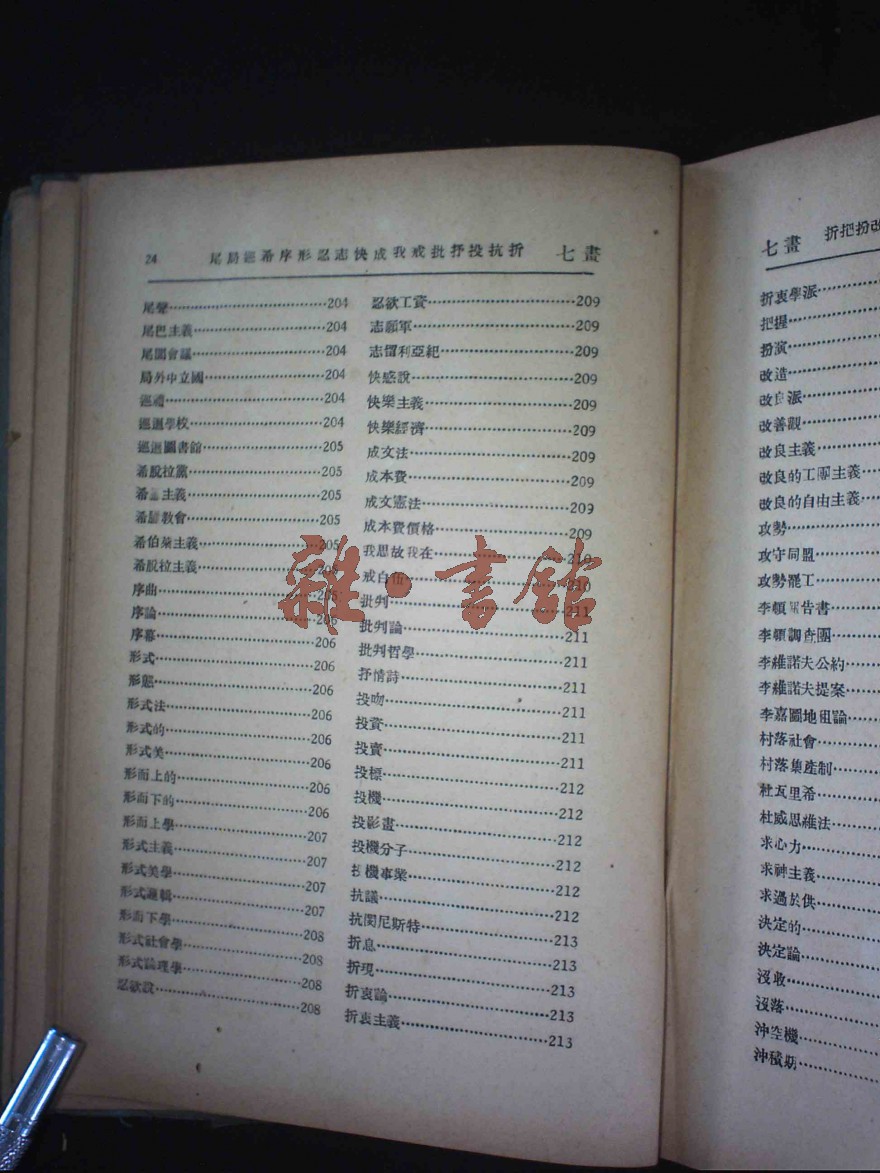 24 尾局巡希序形忍志快成我戒批抒投抗折 七畫
尾聲 204
尾巴主義 204
尾閭會議 204
局外中立國 204
巡禮 204
巡迴學校 204
巡迴圖書館 205
希脫拉黨 205
希主義 205
希臘教會 205
希伯萊主義 205
希脫拉主義
序曲
序論
序幕 206
形式 206
形態 206
形式法 206
形式的 206
形式美 206
形而上的 206
形而下的 206
形而上學 207
形式主義 207
形式美學 207
形式邏輯 207
形而下學 208
形式社會學 208
形式論理學 208
忍欲說 208
忍欲工資 209
志願軍 209
志留利亞紀 209
快感說 209
快樂主義 209
快樂經濟 209
成文法 209
成本費 209
成文憲法 209
成本費價格 209
我思故我在 210
戒白 210
批判 211
批判論 211
批判哲學 211
抒情詩 211
投吻 211
投資 211
投賣 211
投標 212
投機 212
投影畫 212
投機分子 212
投機事業 212
抗議 212
抗閔尼斯特 213
折息 213
折現 213
折衷論 213
折衷主義 213
雜·書館
七畫 折把扮改
折衷學派
把握
扮演
改造
改良派
改善觀
改良主義
改良的工團主義
改良的自由主義
攻勢
攻守同盟
攻勢罷工
李頓報告書
李頓調查團
李維諾夫公約
李維諾夫提案
李嘉圖地租論
村落社會
村落集產制
杜瓦里希
杜威思維法
求心力
求神主義
求過於供
決定的
決定論
沒收
沒落
沖空機
沖積期